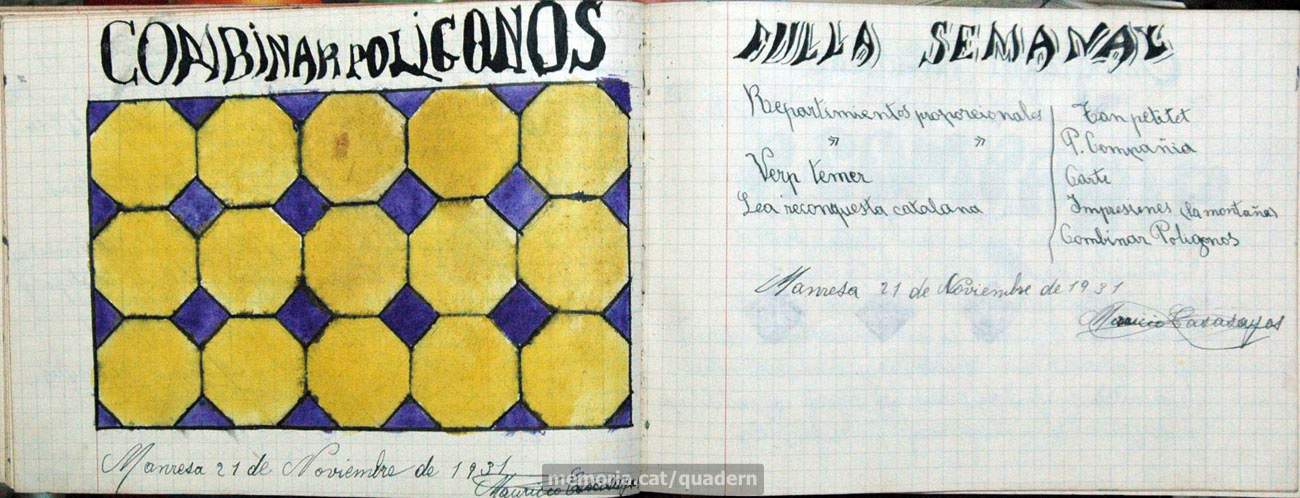 COMBINAR POLÍGONOS
Manresa 21 de Noviembre de 1931
Mauricio
memoria.cat/quadern
FULLA SEMANAL
Repartimientos proporcionales
" "
Verp temer
Lea reconquesta catalana
Tan petitet
P. Compañia
Carte
Impresiones (la montaña)
Combinar Poligonos
Manresa 21 de Noviembre de 1931
Mauricio Casasayas